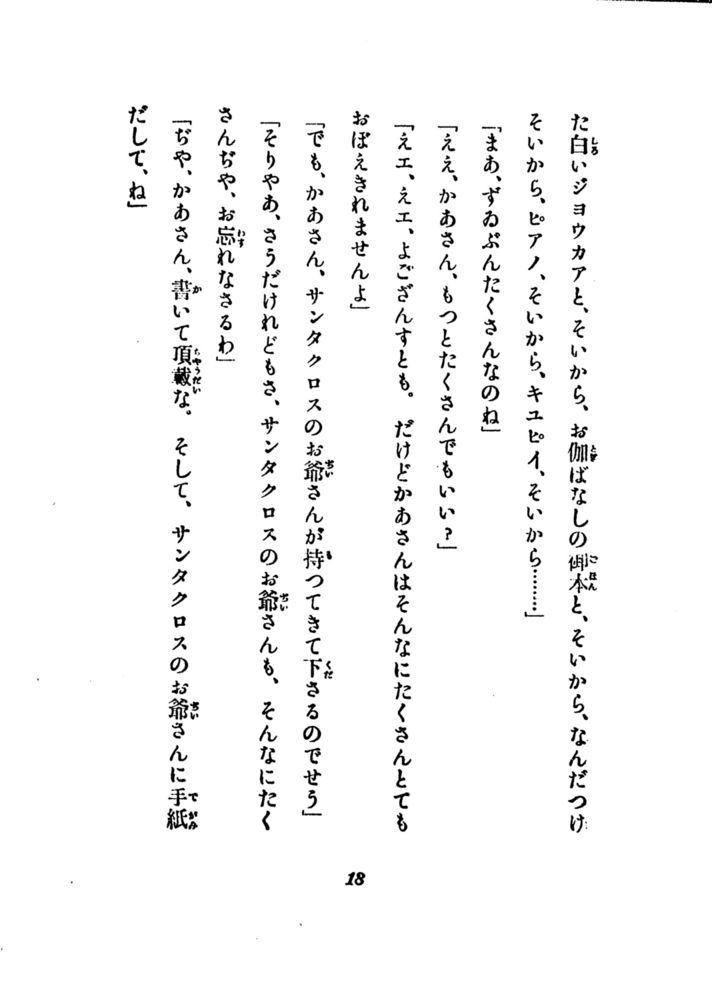 た白いジヨウカアと、そいから、お伽ばなしの御本と、そいから、なんだつけ
そいから、ピアノ、そいから、キユピイ、そいから………」
「まあ、ずゐぶんたくさんなのね」
「ええ、かあさん、もつとたくさんでもいい？」
「えエ、えエ、よござんすとも。だけどかあさんはそんなにたくさんとても
おぼえきれませんよ」
「でも、かあさん、サンタクロスのお爺さんが持つてきて下さるのでせう」
「そりやあ、さうだけれどもさ、サンタクロスのお爺さんも、そんなにたく
さんぢや、お忘れなさるわ」
「ぢや、かあさん、書いて頂戴な。そして、サンタクロスのお爺さんに手紙
だして、ね」
18